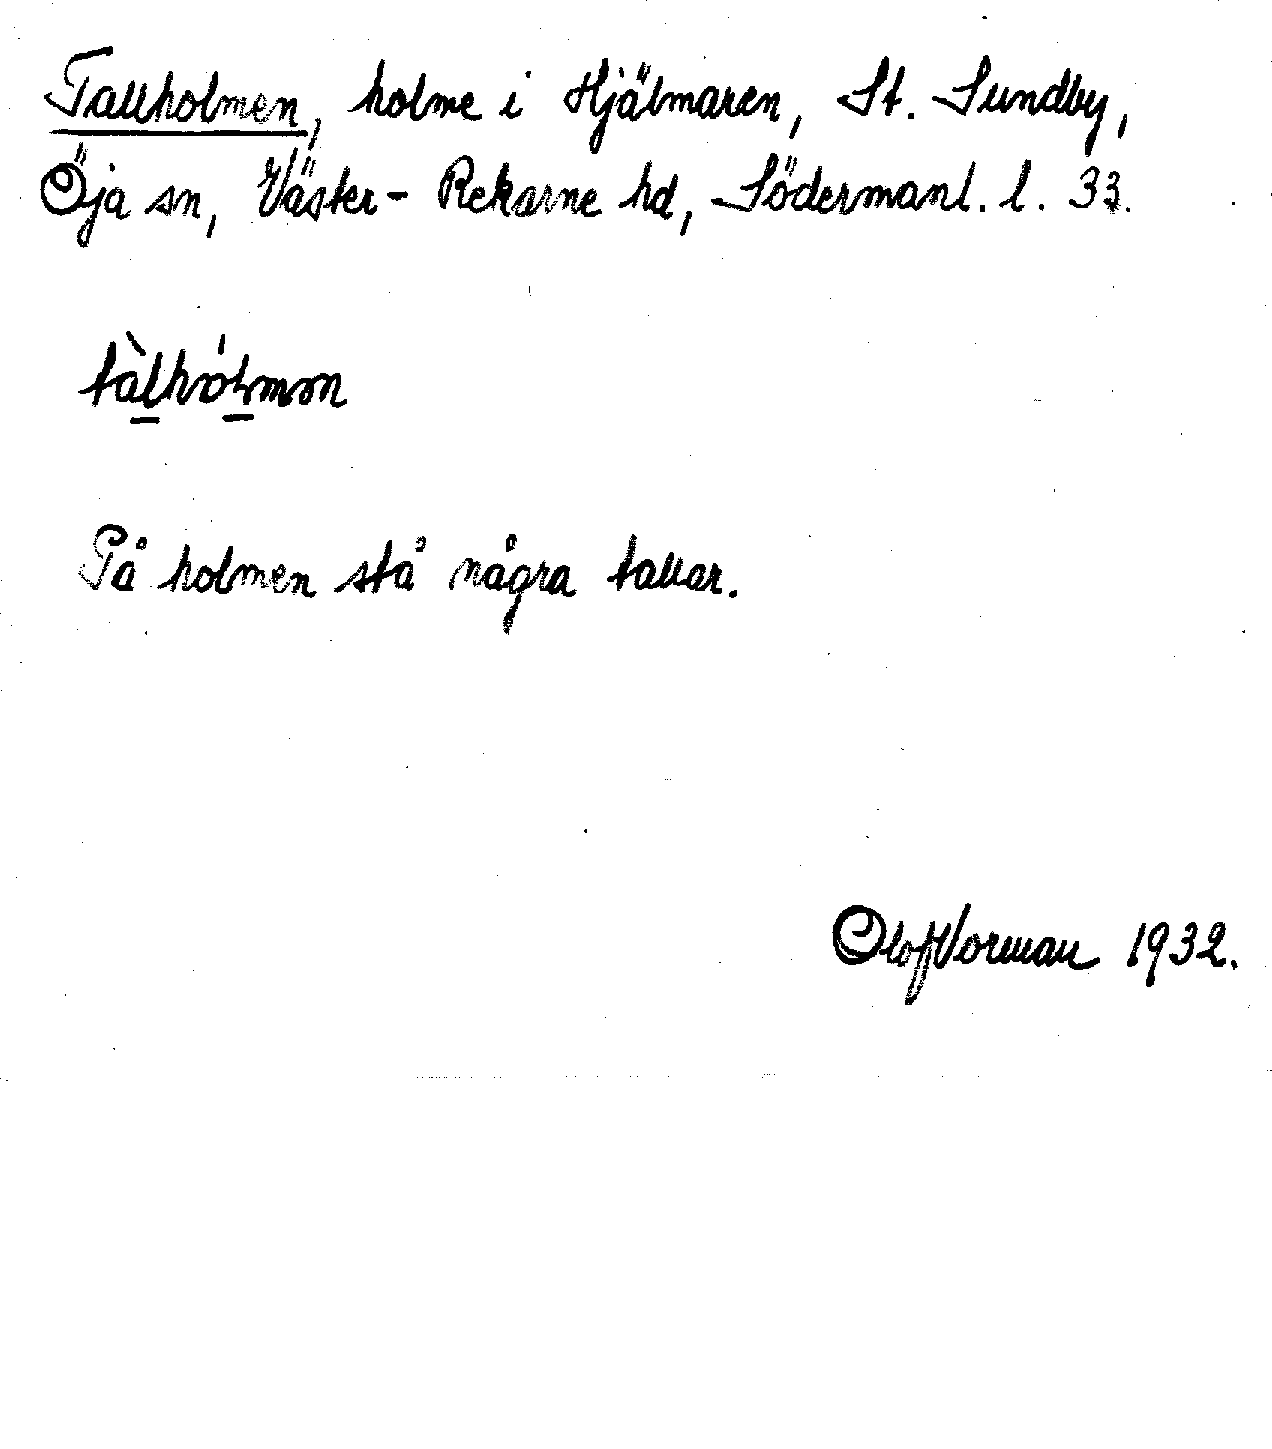 Tallholmen, holme i Hjälmaren, St. Sundby,
Öja sn, Väster-Rekarne hd, Södermanl. l. 33.
På holmen stå några tallar.
Olof Vorman 1932.